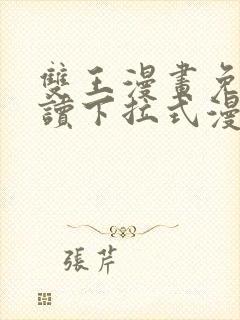 雙王漫畫免
讀下拉式漫
張芹